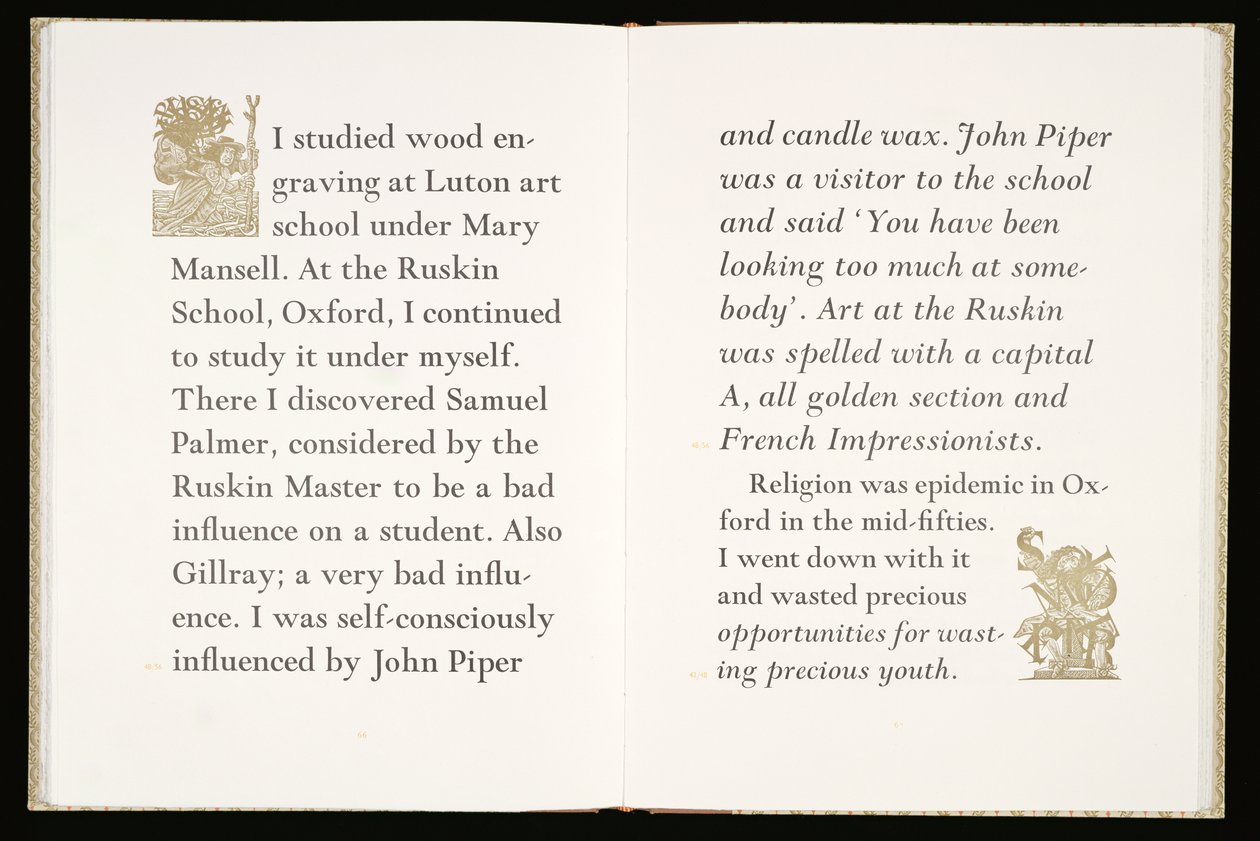 I studied wood en-
graving at Luton art
school under Mary
Mansell. At the Ruskin
School, Oxford, I continued
to study it under myself.
There I discovered Samuel
Palmer, considered by the
Ruskin Master to be a bad
influence on a student. Also
Gillray; a very bad influ-
ence. I was self-consciously
48/56 influenced by John Piper
66
and candle wax. John Piper
was a visitor to the school
and said ‘You have been
looking too much at some-
body’. Art at the Ruskin
was spelled with a capital
A, all golden section and
48/56 French Impressionists.
Religion was epidemic in Ox-
ford in the mid-fifties.
I went down with it
and wasted precious
opportunities for wast-
42/48 ing precious youth.